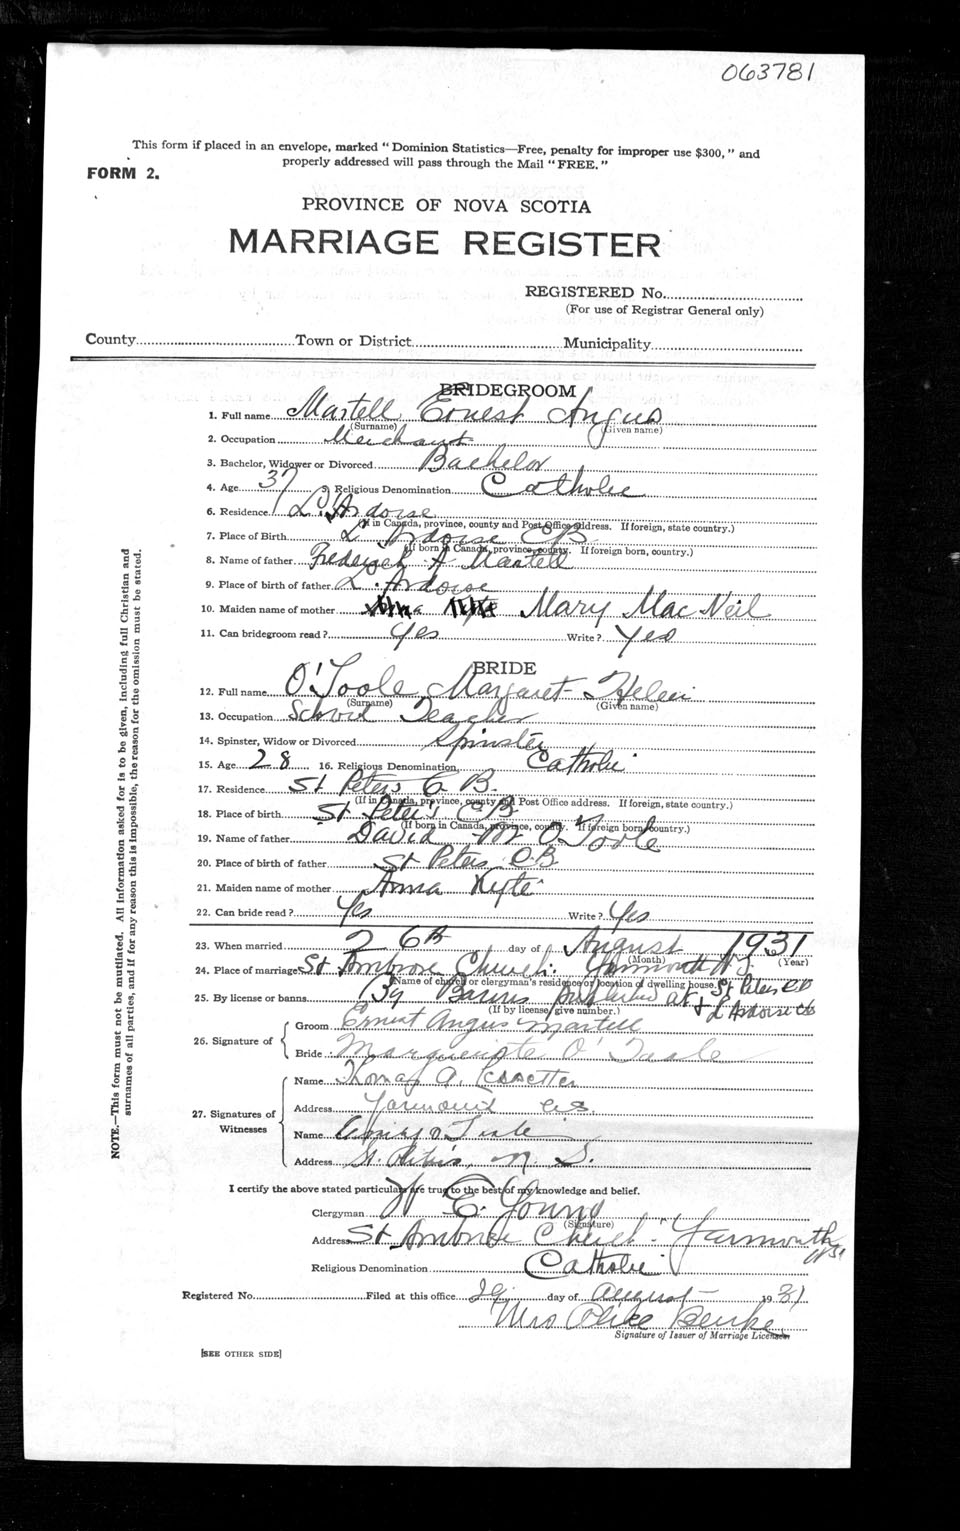 063781
This form if placed in an envelope, marked "Dominion Statistics—Free, penalty for improper use $300," and
properly addressed will pass through the Mail "FREE."
FORM 2.
PROVINCE OF NOVA SCOTIA
MARRIAGE REGISTER
REGISTERED No.
(For use of Registrar General only)
County Town or District Municipality
BRIDEGROOM
1. Full name Martell Ernest Angus
(Surname) (Given name)
2. Occupation Merchant
3. Bachelor, Widower or Divorced Bachelor
4. Age 37 5. Religious Denomination Catholic
6. Residence L'Ardoise
(If in Canada, province, county and Post Office address. If foreign, state country.)
7. Place of Birth L'Ardoise CB
(If born in Canada, province, county. If foreign born, country.)
8. Name of father Frederick A Martell
9. Place of birth of father L'Ardoise
10. Maiden name of mother Mary MacNeil
11. Can bridegroom read? Yes Write? Yes
BRIDE
12. Full name O'Toole Margaret Helen
(Surname) (Given name)
13. Occupation School Teacher
14. Spinster, Widow or Divorced Spinster
15. Age 28 16. Religious Denomination Catholic
17. Residence St Peters C B.
(If in Canada, province, county and Post Office address. If foreign, state country.)
18. Place of birth St Peter's CB
(If born in Canada, province, county. If foreign born, country.)
19. Name of father David M O'Toole
20. Place of birth of father St Peters CB
21. Maiden name of mother Anna Kyte
22. Can bride read? Yes Write? Yes
23. When married 26th day of August 1931
(Month) (Year)
24. Place of marriage St Ambrose Church. Yarmouth N.S.
(Name of church or clergyman's residence or location of dwelling house.)
25. By license or banns By Banns published at St Peters CB
(If by license, give number.) + L'Ardoise CB
26. Signature of
Groom Ernest Angus Martell
Bride Marguerite O'Toole
27. Signatures of
Witnesses
Name Thomas A.
Address Yarmouth N.S.
Name O'Toole
Address St. Peter's, N. S.
I certify the above stated particulars are true to the best of my knowledge and belief.
Clergyman W E Young
(Signature)
Address St Ambrose Church Yarmouth
N.S.
Religious Denomination Catholic
Registered No. Filed at this office 29 day of August 1931
Mrs Olive
Signature of Issuer of Marriage Licenses
[SEE OTHER SIDE]
NOTE.—This form must not be mutilated. All information asked for is to be given, including full Christian and
surnames of all parties, and if for any reason this is impossible, the reason for the omission must be stated.